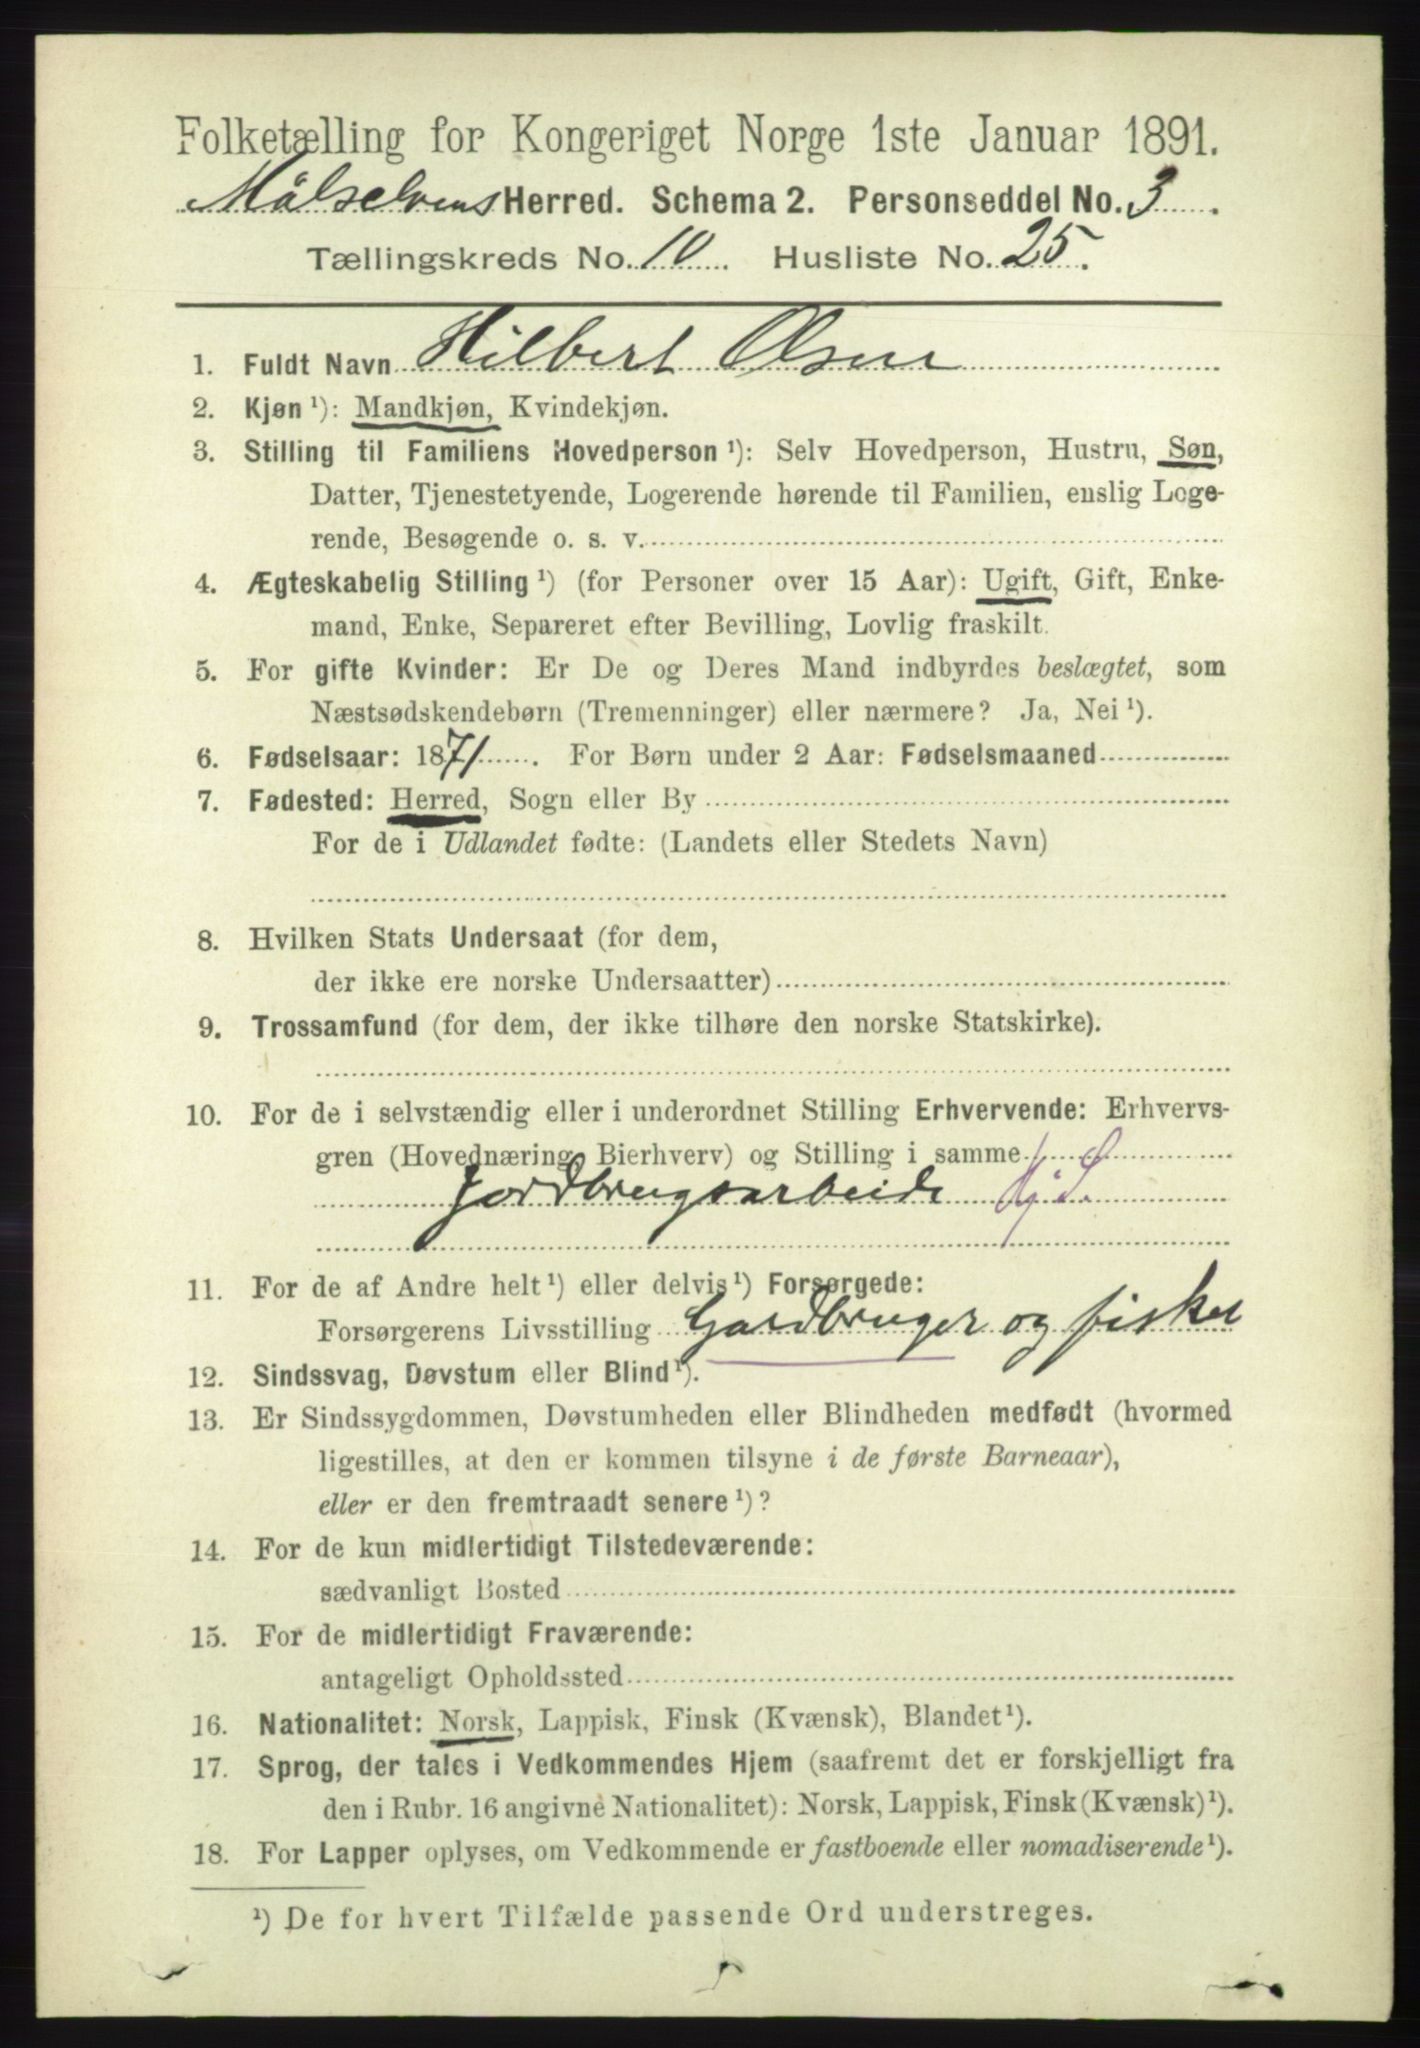 Folketælling for Kongeriget Norge 1ste Januar 1891.
Målselvens Herred. Schema 2. Personseddel No. 3.
Tællingskreds No. 10. Husliste No. 25.
1. Fuldt Navn Hilbert Olsen
2. Kjøn ¹): Mandkjøn, Kvindekjøn.
3. Stilling til Familiens Hovedperson ¹): Selv Hovedperson, Hustru, Søn,
Datter, Tjenestetyende, Logerende hørende til Familien, enslig Loge-
rende, Besøgende o. s. v.
4. Ægteskabelig Stilling ¹) (for Personer over 15 Aar): Ugift, Gift, Enke-
mand, Enke, Separeret efter Bevilling, Lovlig fraskilt.
5. For gifte Kvinder: Er De og Deres Mand indbyrdes beslægtet, som
Næstsødskendebørn (Tremenninger) eller nærmere? Ja, Nei ¹).
6. Fødselsaar: 1871. For Børn under 2 Aar: Fødselsmaaned
7. Fødested: Herred, Sogn eller By
For de i Udlandet fødte: (Landets eller Stedets Navn)
8. Hvilken Stats Undersaat (for dem,
der ikke ere norske Undersaatter)
9. Trossamfund (for dem, der ikke tilhøre den norske Statskirke).
10. For de i selvstændig eller i underordnet Stilling Erhvervende: Erhvervs-
gren (Hovednæring, Bierhverv) og Stilling i samme
Jordbrugsarbeide
11. For de af Andre helt ¹) eller delvis ¹) Forsørgede:
Forsørgerens Livsstilling Gardbruger og fisker
12. Sindssvag, Døvstum eller Blind ¹).
13. Er Sindssygdommen, Døvstumheden eller Blindheden medfødt (hvormed
ligestilles, at den er kommen tilsyne i de første Barneaar),
eller er den fremtraadt senere ¹)?
14. For de kun midlertidigt Tilstedeværende:
sædvanligt Bosted
15. For de midlertidigt Fraværende:
antageligt Opholdssted
16. Nationalitet: Norsk, Lappisk, Finsk (Kvænsk), Blandet ¹).
17. Sprog, der tales i Vedkommendes Hjem (saafremt det er forskjelligt fra
den i Rubr. 16 angivne Nationalitet): Norsk, Lappisk, Finsk (Kvænsk) ¹).
18. For Lapper oplyses, om Vedkommende er fastboende eller nomadiserende ¹).
¹) De for hvert Tilfælde passende Ord understreges.